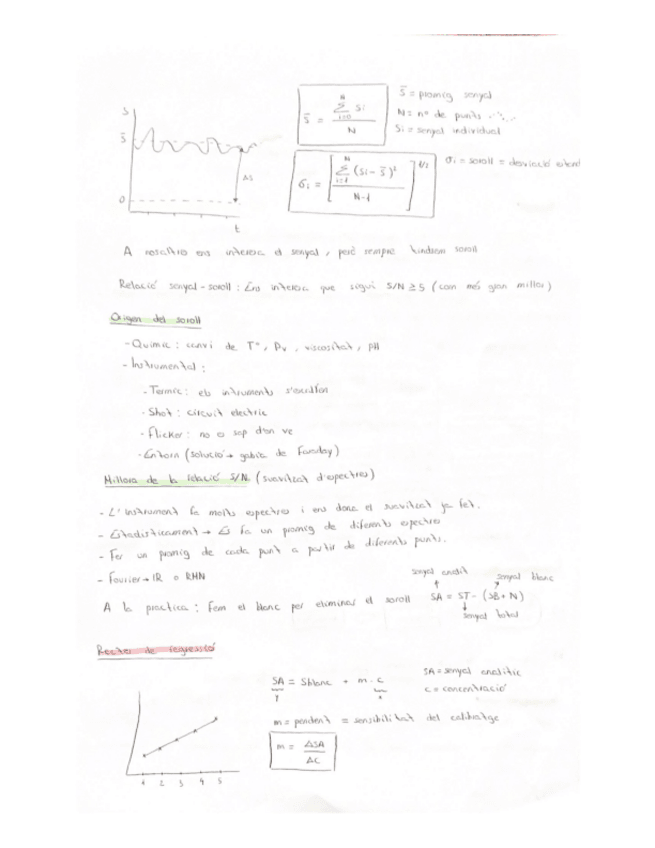 S
S̄
0
ΔS
t
S̄ = Σ(i=0→N) Si / N
S̄ = promig senyal
N = nº de punts
Si = senyal individual
σi = [ Σ(i=1→N) (Si - S̄)² / N-1 ]^1/2
σi = soroll = desviació
A nosaltres ens interesa el senyal, però sempre tindrem soroll
Relació senyal-soroll: Ens interesa que sigui S/N ≥ 5 (com més gran millor)
Origen del soroll
- Químic: canvi de Tª, Pv, viscositat, pH
- Instrumental:
- Termic: els intruments s'escalfen
- Shot: circuit electric
- Flicker: no es sap d'on ve
- Entorn (solució → gabia de Faraday)
Millora de la relació S/N (suavitzat d'espectres)
- L'instrument fa molts espectres i ens dona el suavitzat ja fet.
- Estadisticament → Es fa un promig de diferents espectres
- Fer un promig de cada punt a partir de diferents punts.
- Fourier → IR o RMN
A la practica: Fem el blanc per eliminar el soroll
senyal analit
senyal blanc
SA = ST - (SB + N)
senyal total
Rectes de regressió
SA = Sblanc + m·c
y x
SA = senyal analitic
c = concentració
m = pendent = sensibilitat del calibatge
m = ΔSA / ΔC
1 2 3 4 5